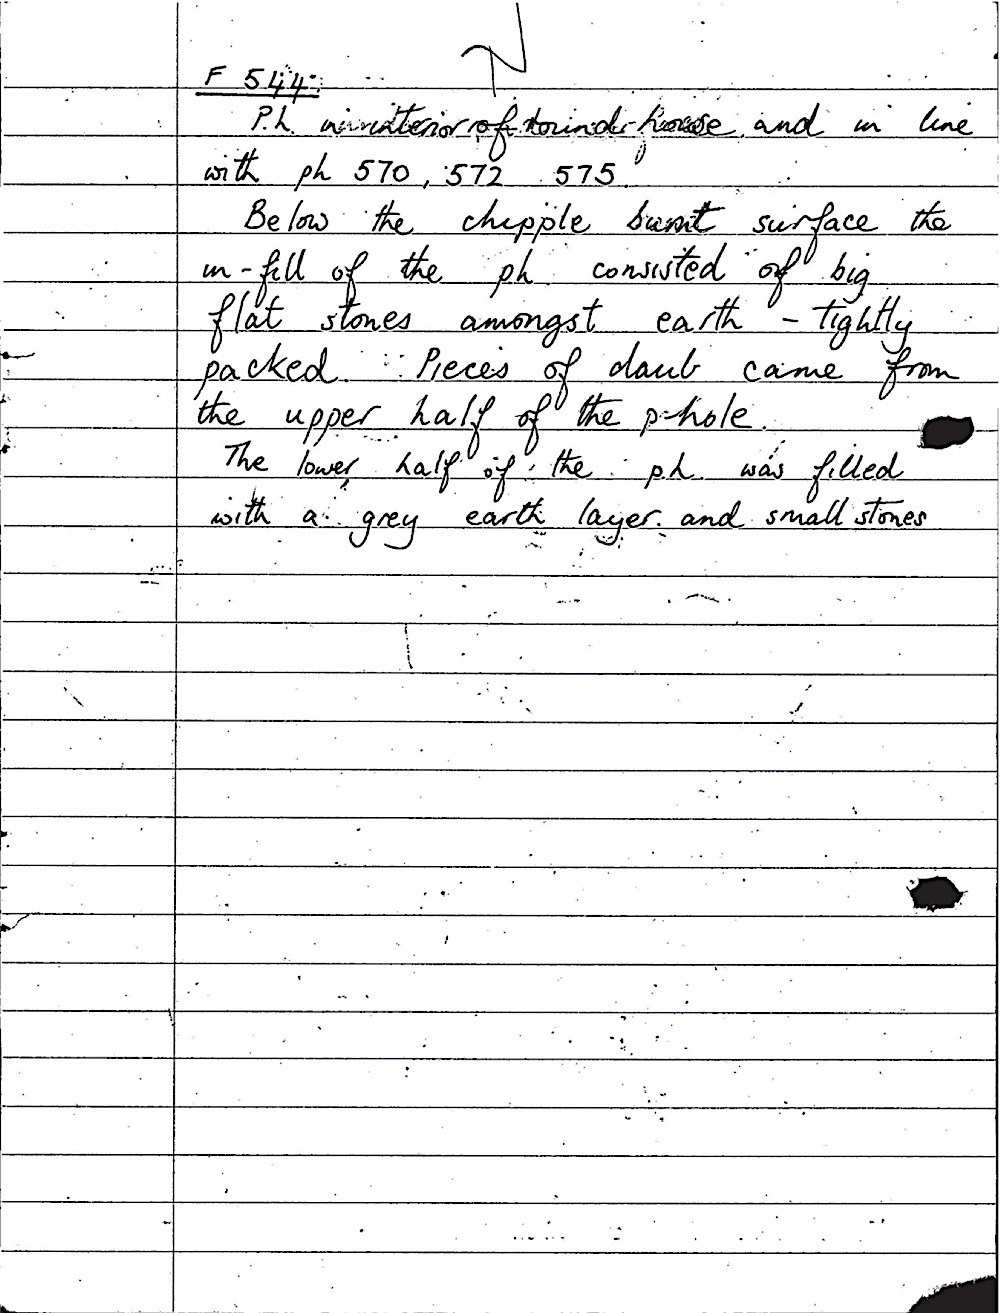 F 544:
P.h. in interior of round house and in line
with ph 570, 572 575.
Below the chipple burnt surface the
in-fill of the ph. consisted of big
flat stones amongst earth - tightly
packed. Pieces of daub came from
the upper half of the p-hole.
The lower half of the p.h. was filled
with a grey earth layer and small stones